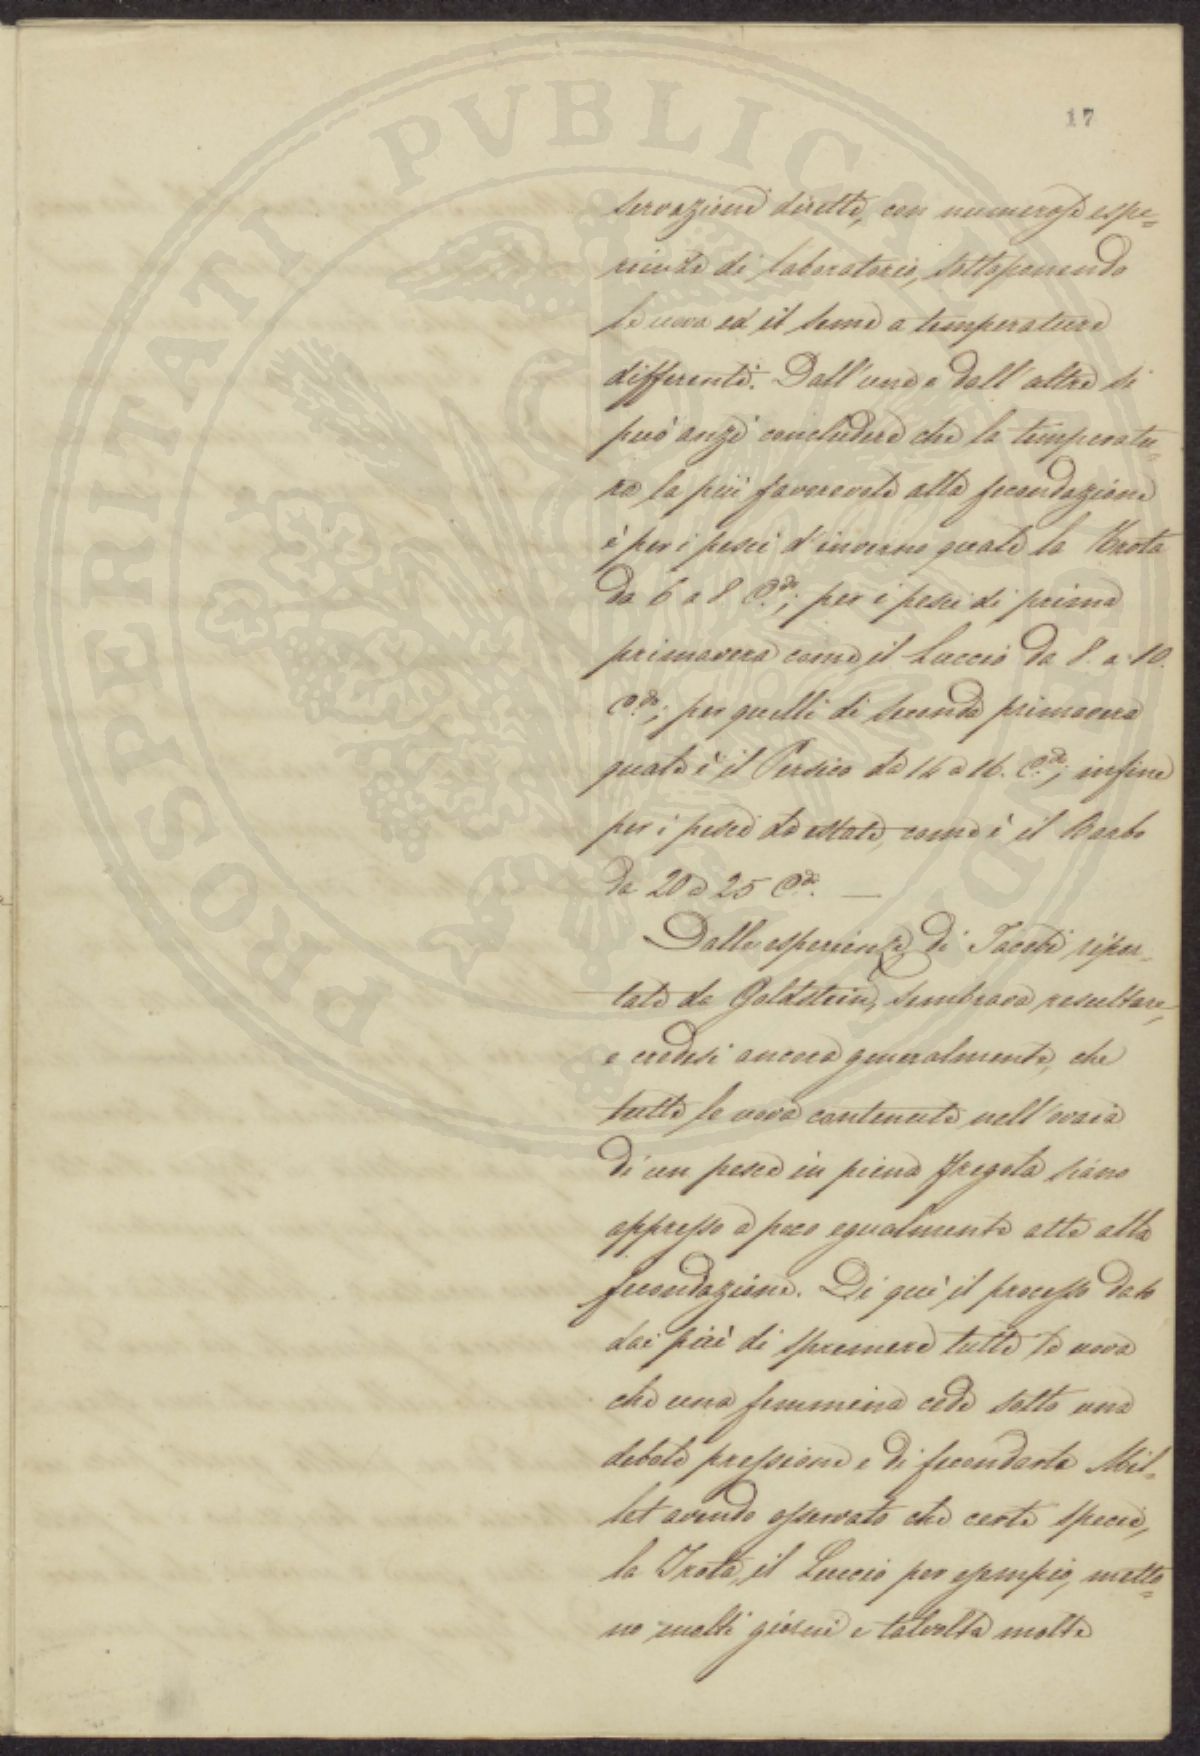 17
servazioni dirette, con numerose espe=
rienze di laboratorio, sottoponendo
le uova ed il seme a temperature
differenti. Dall'une e dall'altre si
può anzi concludere che la temperatu=
ra la più favorevole alla fecondazione
è per i pesci d'inverno quale la Trota
da 6 a 8 C.di; per i pesci di prima
primavera come il Luccio da 8. a 10.
C.di; per quelli di seconda primavera
quale è il Persico da 14 a 16. C.di; infine
per i pesci da estate, come è il Barbo
da 20 a 25 C.di. —
Dalle esperienze di Jacobi ripor=
tate da Goldstein, sembrava resultare,
e credesi ancora generalmente, che
tutte le uova contenute nell'ovaia
di un pesce in piena fregola siano
appresso a poco egualmente atte alla
fecondazione. Di qui il processo dato
dai più di spremere tutte le uova
che una femmina cede sotto una
debole pressione e di fecondarle Mil=
let avendo osservato che certe specie,
la Trota, il Luccio per esempio, metto=
no molti giorni e talvolta molte
PROSPERITATI PVBLICAE